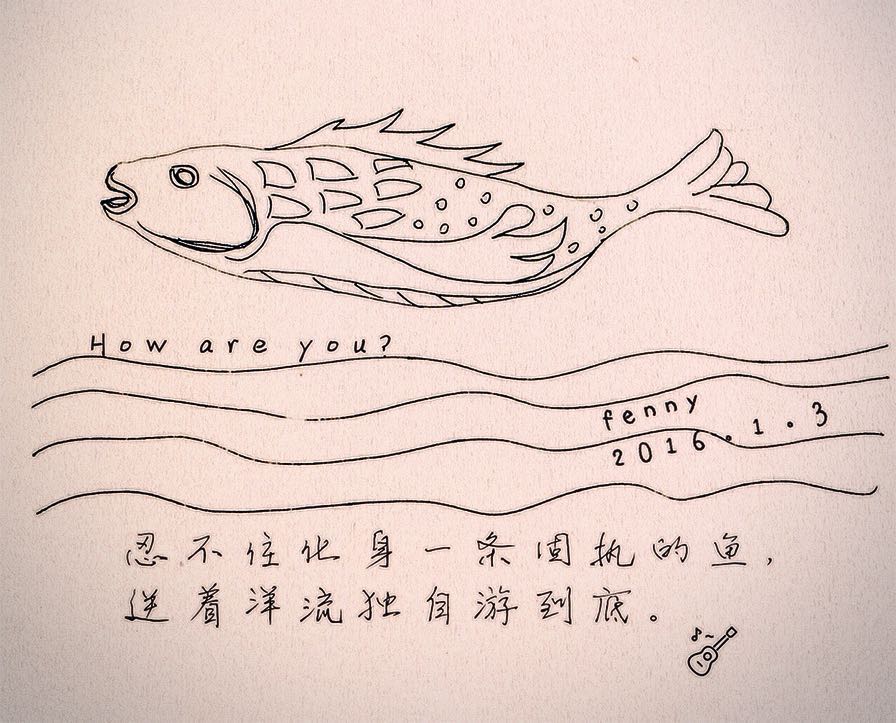 How are you?
fenny
2016.1.3
忍不住化身一条固执的鱼，
逆着洋流独自游到底。